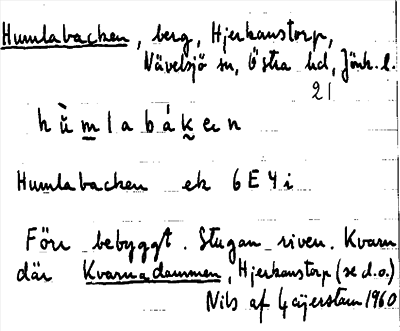 Humlabacken, berg, Hjerkanstorp,
Nävelsjö sn, Östra hd, Jönk. l.
21
hŭ̀mlabákɛn
Humlabacken ek 6E4i
Förr bebyggt. Stugan riven. Kvarn
där Kvarnadammen, Hjerkanstorp (se d.o.)
Nils af Geijerstam 1960